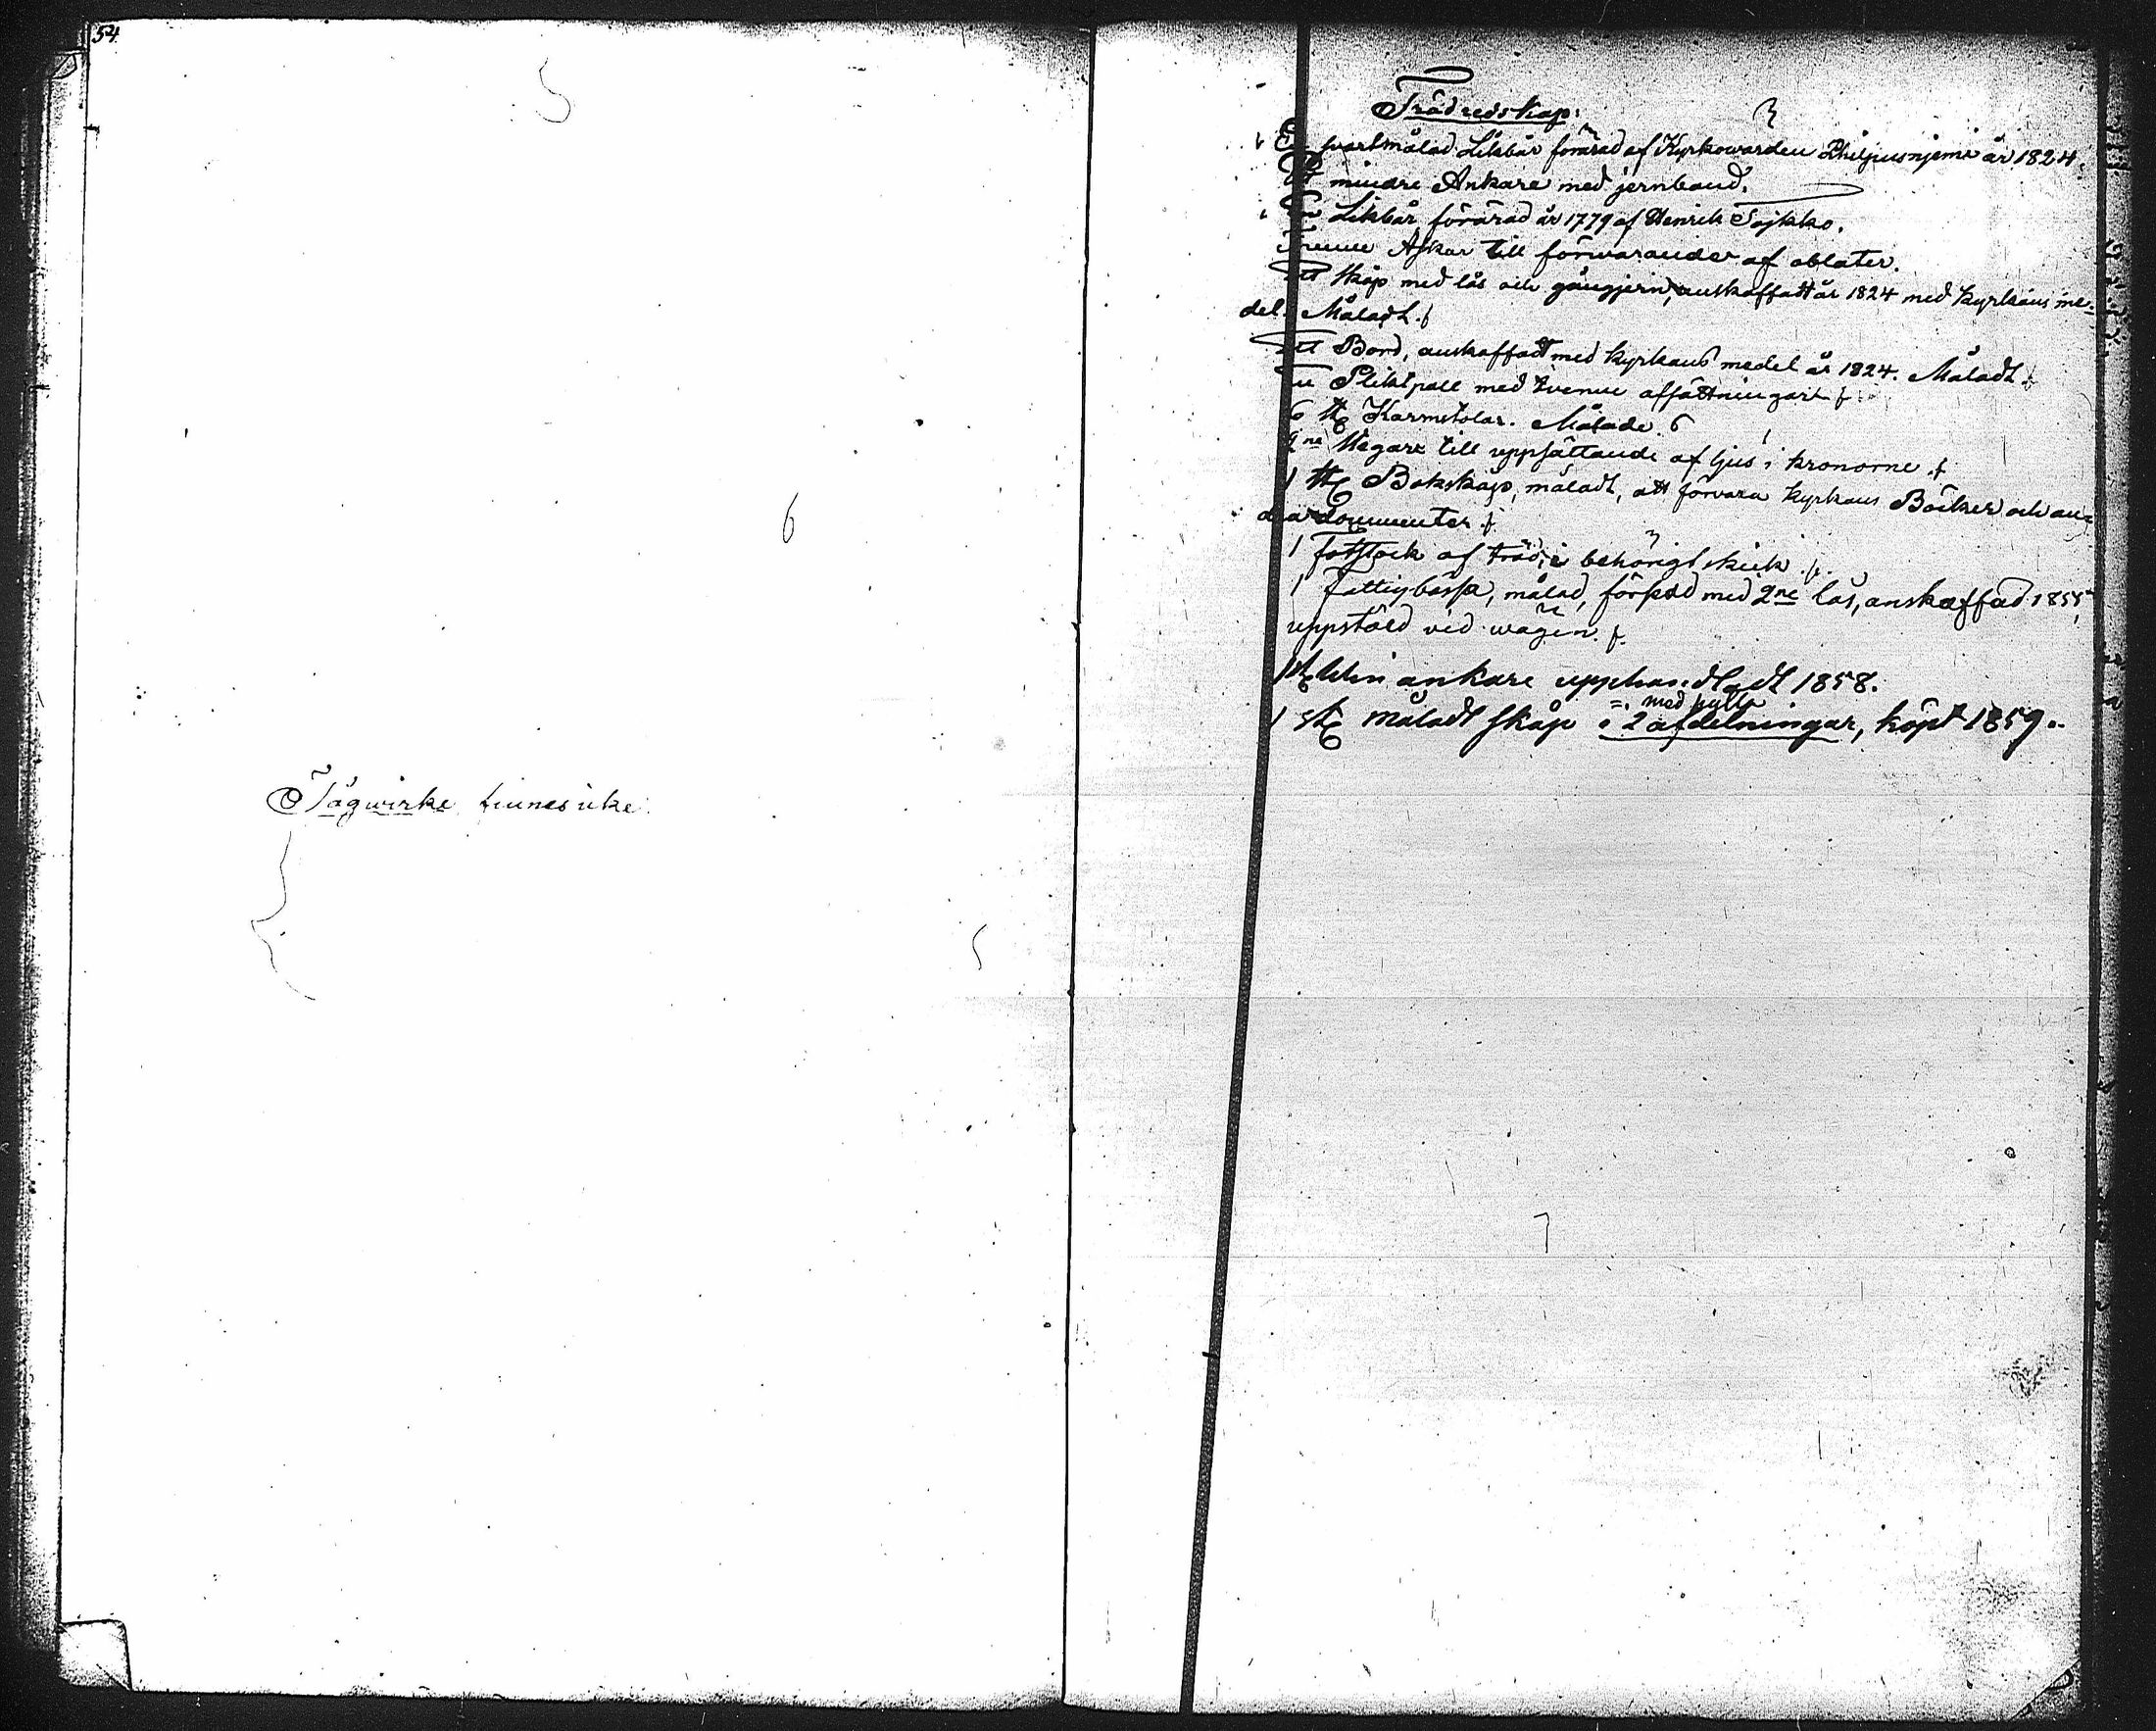 54
Tågwirke finnes icke.
Trädredskap:
En svartmålad Likbår förärad af Kyrkowarden Philjusnjemi år 1824.
Ett mindre Ankare med jernband.
En Likbår förärad år 1779 af Henrik Sojkko.
Trenne Askar till förwarander af oblater.
Ett skåp med lås och gångjern, anskaffatt år 1824 med kyrkans me-
del. Måladt.
Ett Bord, anskaffadt med kyrkans medel år 1824. Måladt.
En Pliktpall med tvenne affattningar
6 st Karmstolar. Målade. 6
2ne Stegare till uppsättande af ljus i kronorne.
1 st Bokskåp, måladt, att förvara kyrkans Böcker och an-
dra documenter.
1 fotstock af träd, i behörigt skick.
1 Fattigbössa, målad, försedd med 2ne lås, anskaffad 1855,
uppstäld vid wägen.
1 st Win ankare upphandladt 1858.
1 st måladt skåp i 2 afdelningar, med hylla köpt 1859.